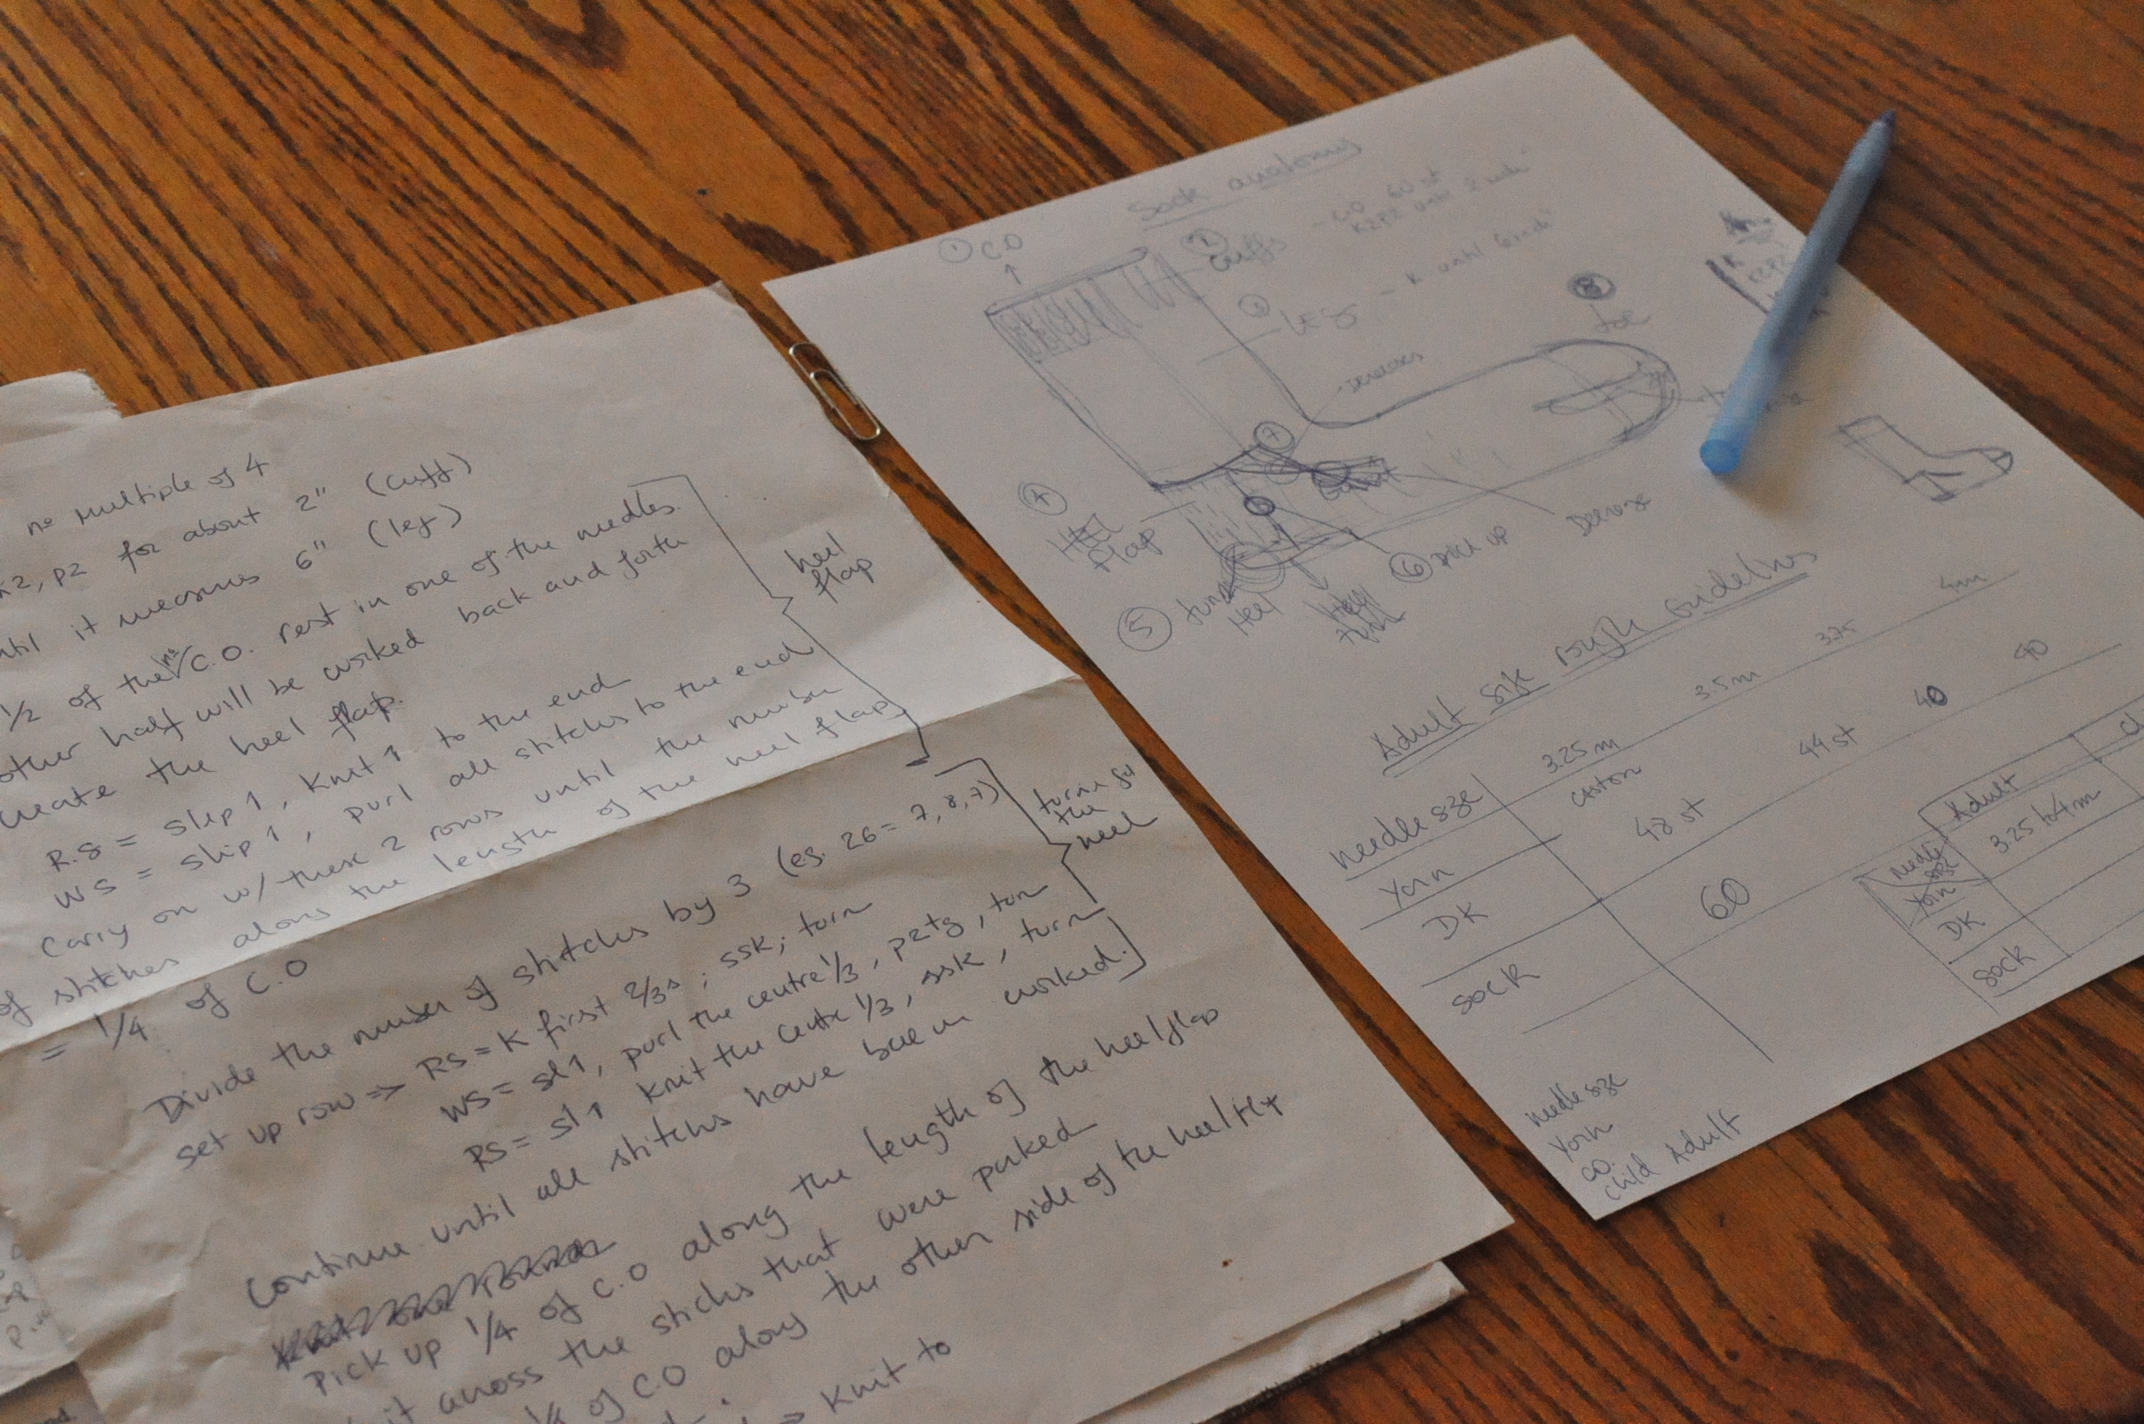 nº multiple of 4
k2, p2 for about 2" (cuff)
until it measures 6" (leg)
1/2 of the nº C.O. rest in one of the needles.
other half will be worked back and forth
create the heel flap.
heel
flap
R.S = slip 1, knit 1 to the end
WS = slip 1, purl all stitches to the end
Carry on w/ these 2 rows until the number
of stitches along the length of the heel flap
= 1/4 of C.O
Divide the number of stitches by 3 (eg. 26 = 7, 8, 7)
set up row => RS = K first 2/3s ; ssk; turn
WS = sl1, purl the centre 1/3, p2tg, turn
RS = sl1 knit the centre 1/3, ssk, turn
Continue until all stitches have been worked.
the
heel
Pick up 1/4 of C.O along the length of the heel flap
across the stitches that were parked
of C.O along the other side of the heel
=> knit to
Sock anatomy
① CO
Cuffs - CO 60 st
K2P2 until 2 inch
leg - K until 6 inch
⑧
toe
increases
⑦
④
Flap
⑤ turn
Heel
⑥ pick up
Decrease
Adult size rough Guidelines
needle size 3.25 m 3.5 m 3.75 4m
Yarn caston
DK 48 st 44 st 40 40
SOCK 60
Adult
needle
size 3.25 to 4 m
Yarn
DK
SOCK
needle size
Yarn
CO.
child Adult